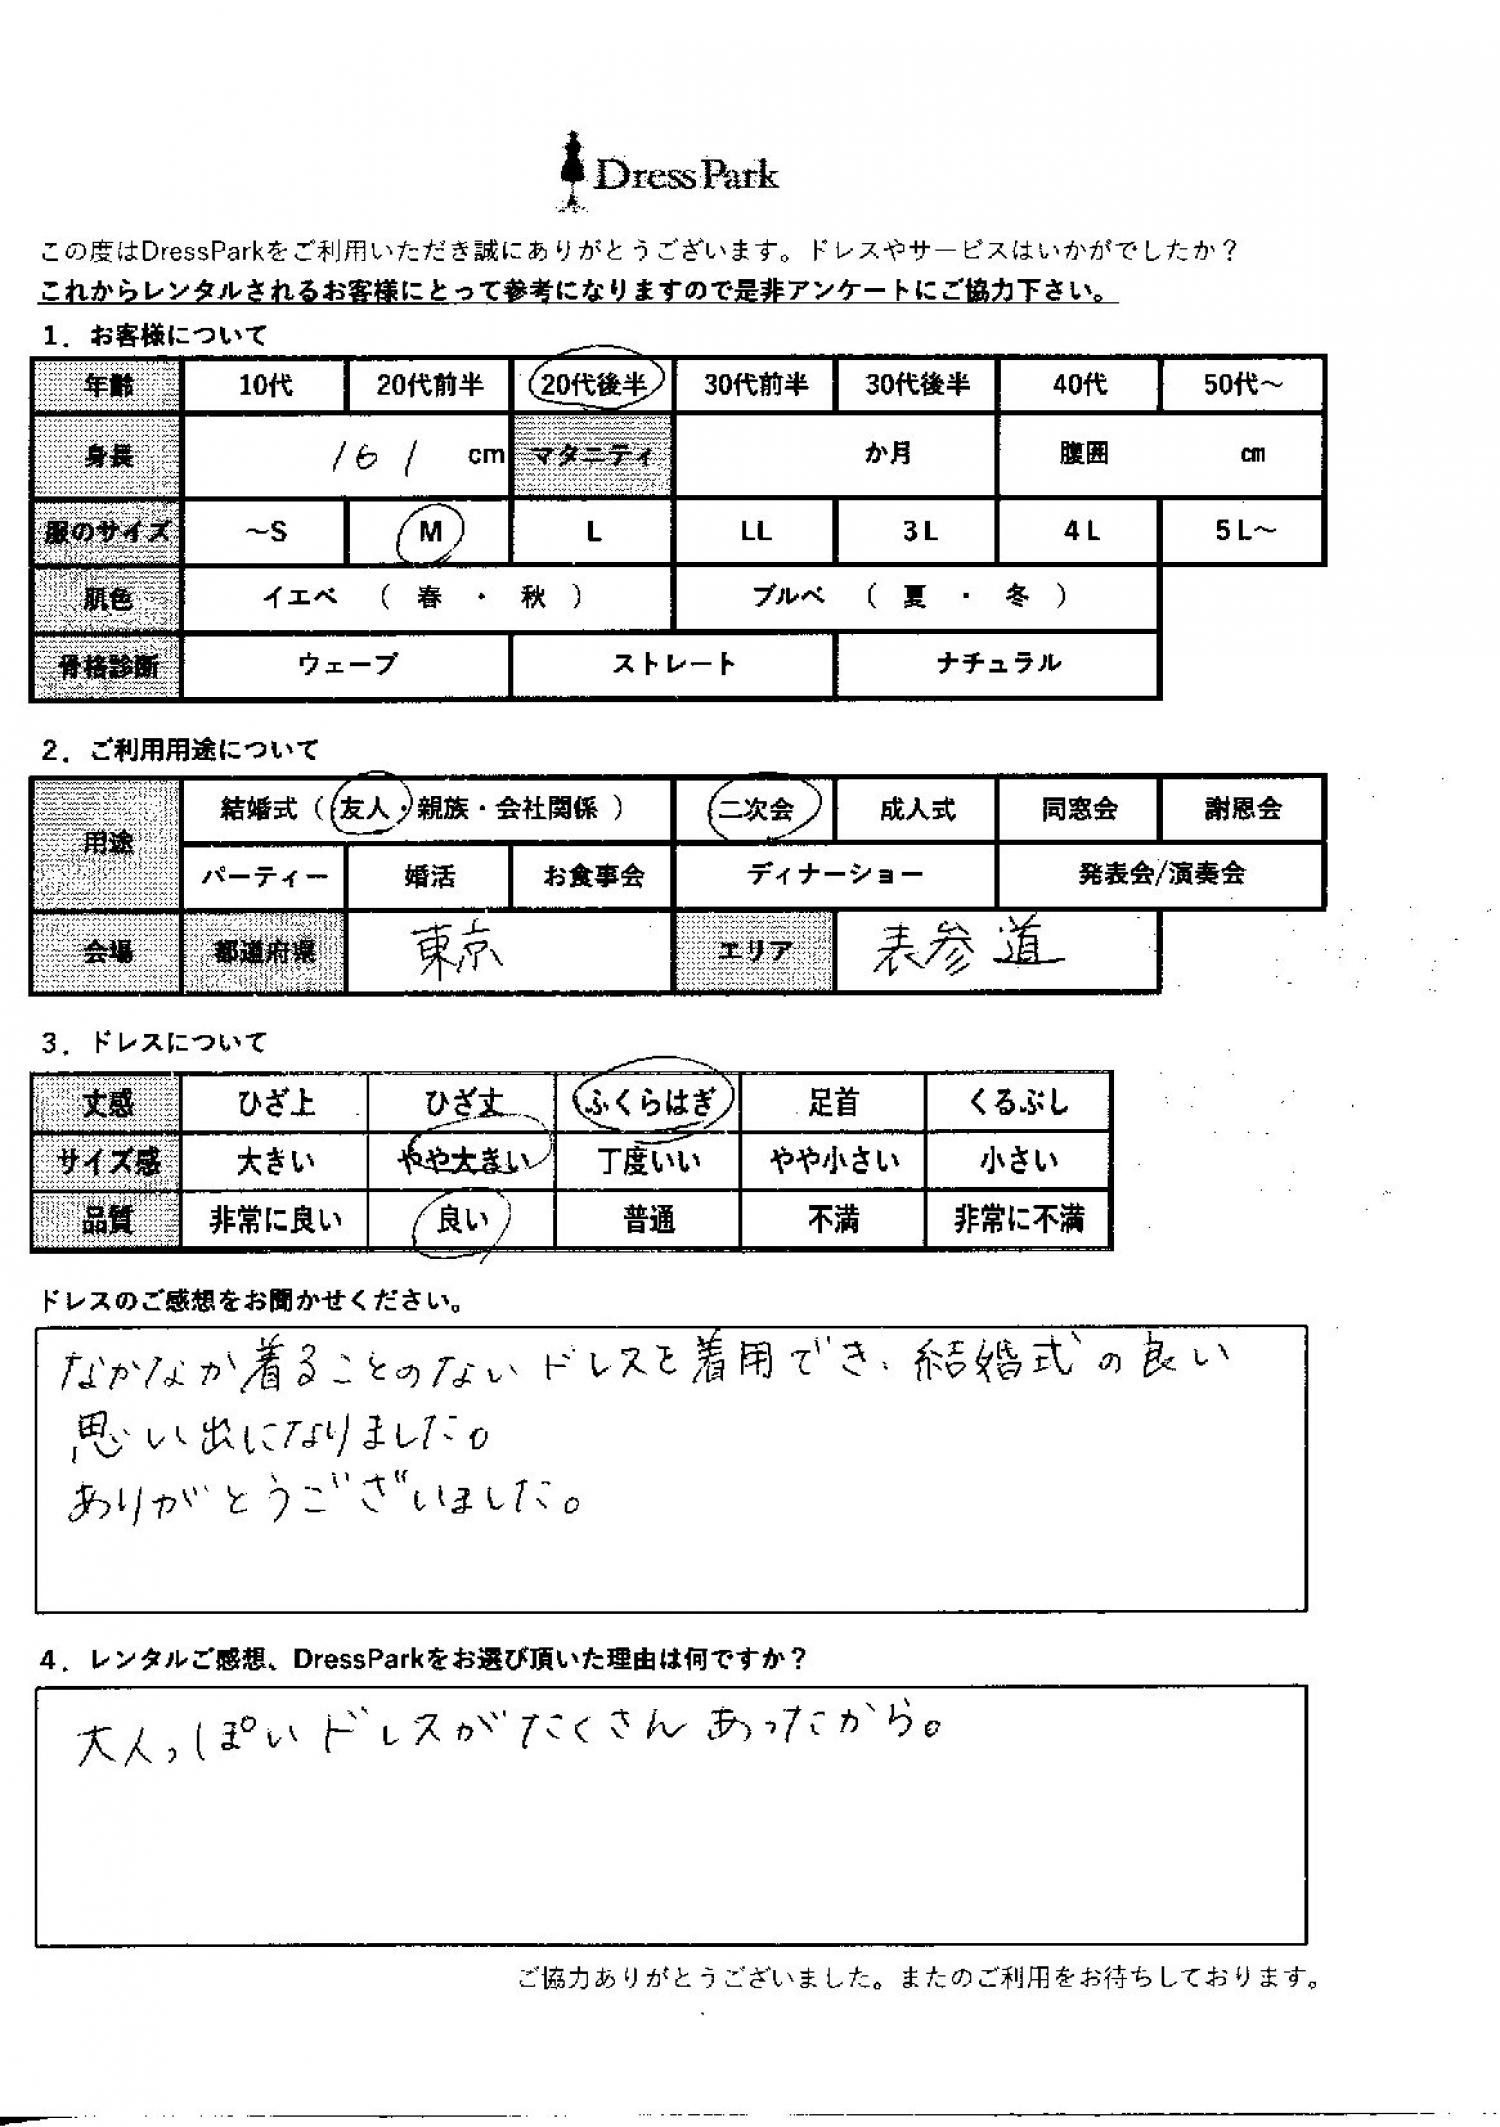 Dress Park
この度はDressParkをご利用いただき誠にありがとうございます。ドレスやサービスはいかがでしたか？
これからレンタルされるお客様にとって参考になりますので是非アンケートにご協力下さい。
1．お客様について
年齢 10代 20代前半 20代後半 30代前半 30代後半 40代 50代～
身長 161 cm マタニティ か月 腹囲 cm
服のサイズ ～S M L LL 3L 4L 5L～
肌色 イエベ （ 春 ・ 秋 ） ブルベ （ 夏 ・ 冬 ）
骨格診断 ウェーブ ストレート ナチュラル
2．ご利用用途について
用途 結婚式（ 友人・親族・会社関係 ） 二次会 成人式 同窓会 謝恩会
パーティー 婚活 お食事会 ディナーショー 発表会/演奏会
会場 都道府県 東京 エリア 表参道
3．ドレスについて
丈感 ひざ上 ひざ丈 ふくらはぎ 足首 くるぶし
サイズ感 大きい やや大きい 丁度いい やや小さい 小さい
品質 非常に良い 良い 普通 不満 非常に不満
ドレスのご感想をお聞かせください。
なかなか着ることのないドレスを着用でき、結婚式の良い
思い出になりました。
ありがとうございました。
4．レンタルご感想、DressParkをお選び頂いた理由は何ですか？
大人っぽいドレスがたくさんあったから。
ご協力ありがとうございました。またのご利用をお待ちしております。